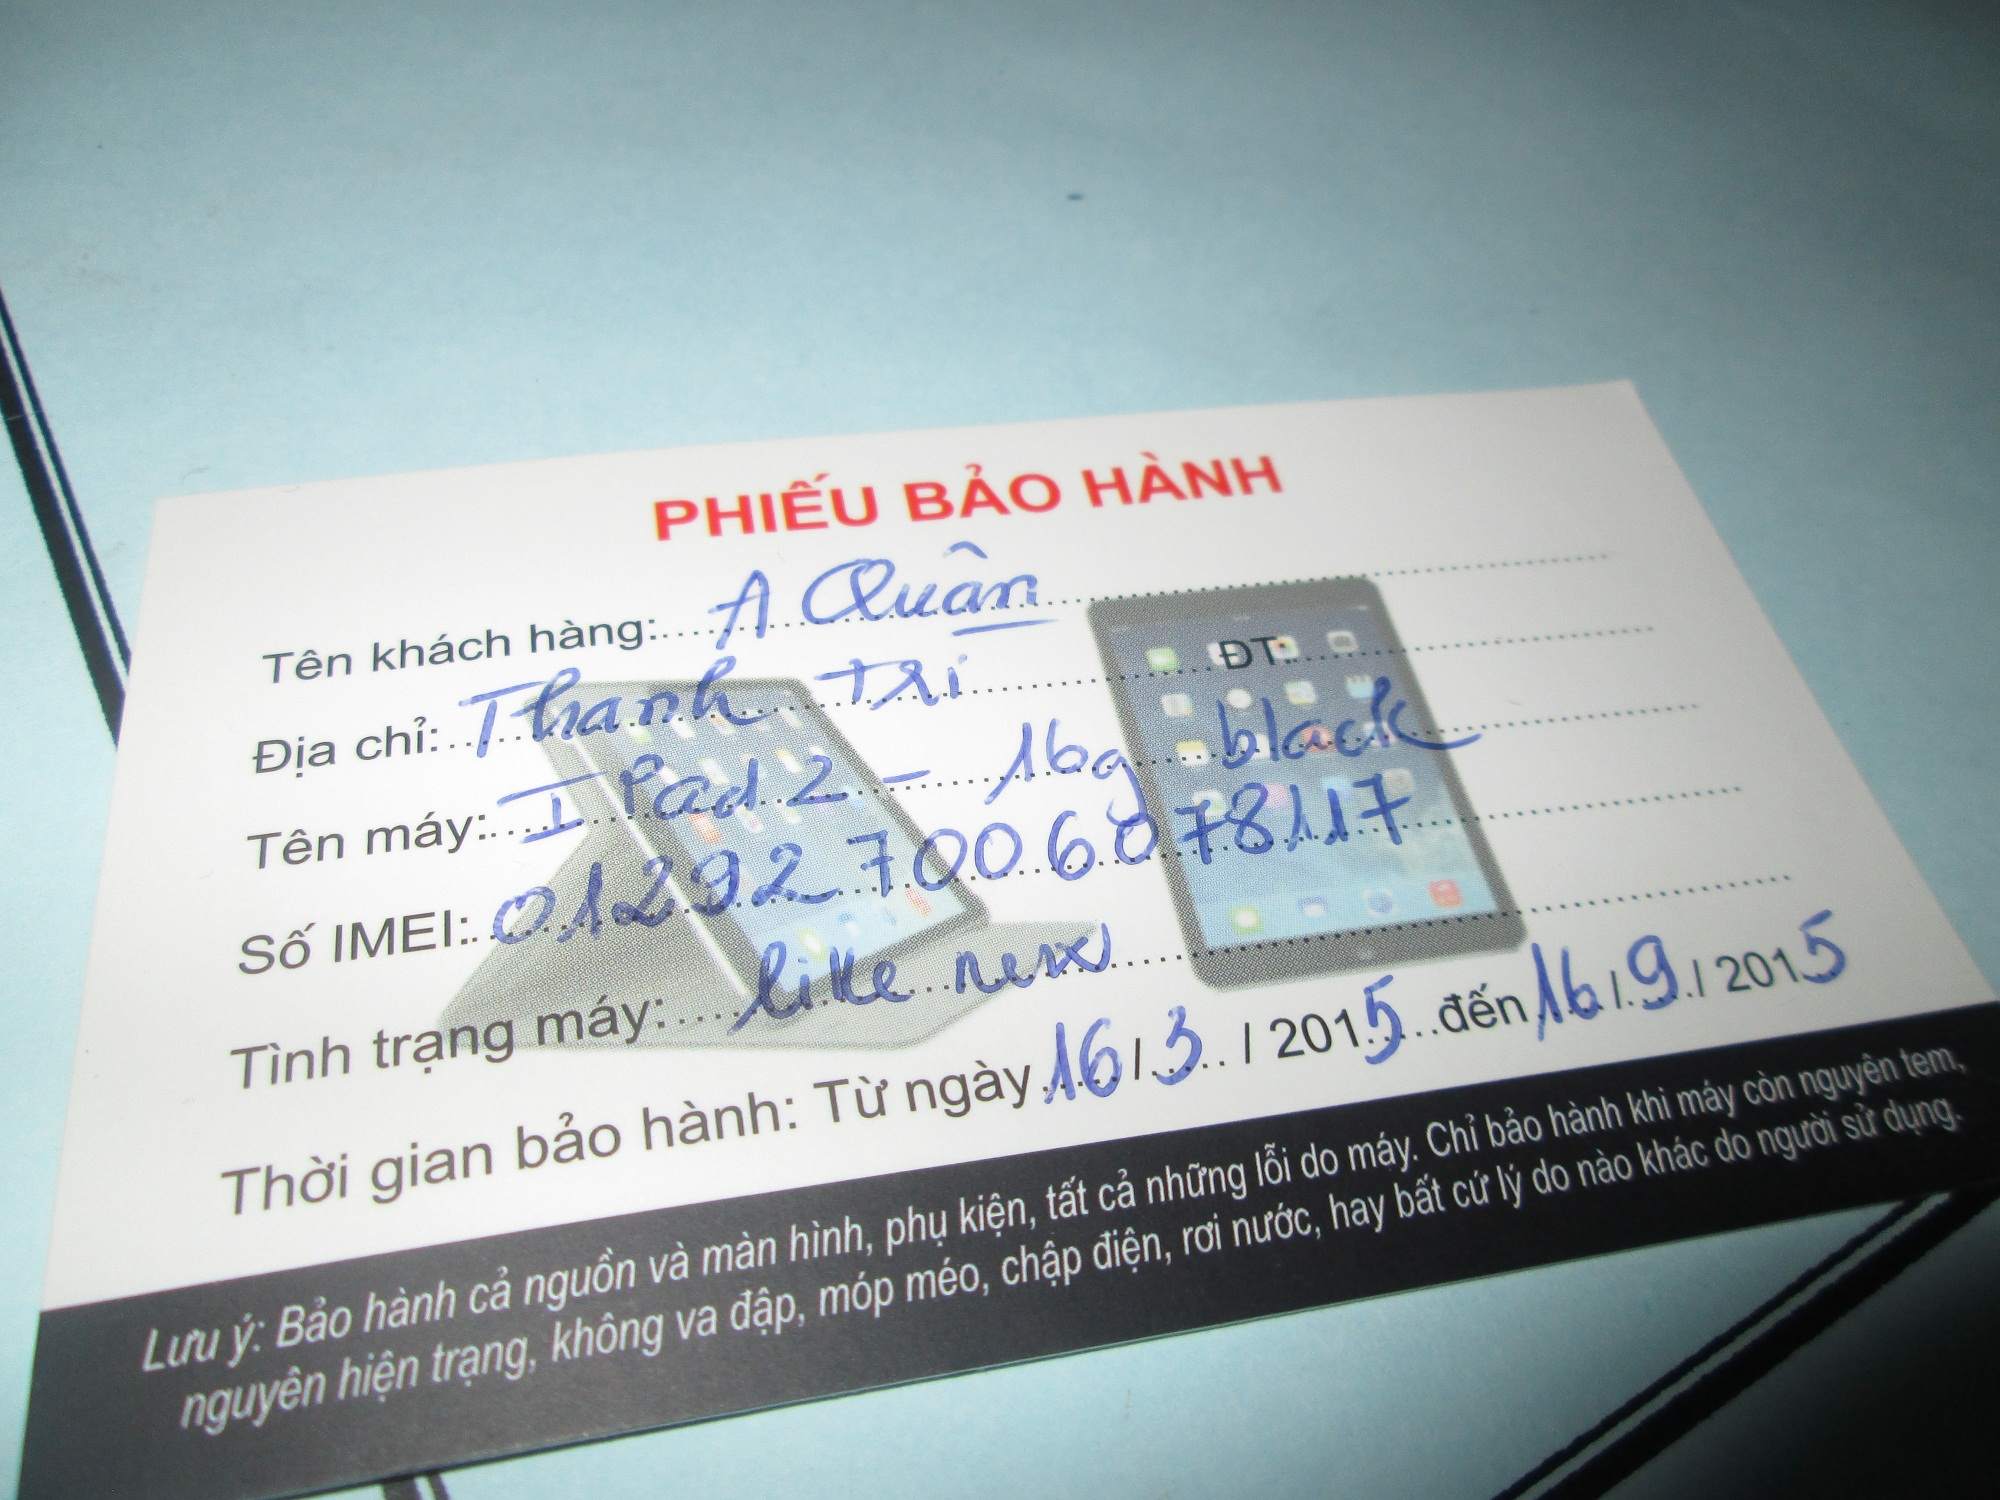 PHIẾU BẢO HÀNH
Tên khách hàng: A Quân
Địa chỉ: Thanh Tri ĐT:
Tên máy: I Pad 2 - 16g black
Số IMEI: 012927006078117
Tình trạng máy: like new
Thời gian bảo hành: Từ ngày 16 / 3 / 2015 đến 16 / 9 / 2015
Lưu ý: Bảo hành cả nguồn và màn hình, phụ kiện, tất cả những lỗi do máy. Chỉ bảo hành khi máy còn nguyên tem,
nguyên hiện trạng, không va đập, móp méo, chập điện, rơi nước, hay bất cứ lý do nào khác do người sử dụng.